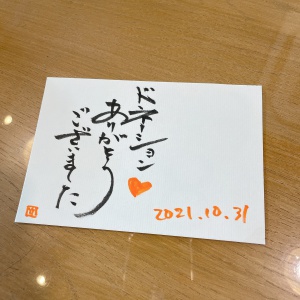 ドネーション
ありがとう
ございました
2021.10.31